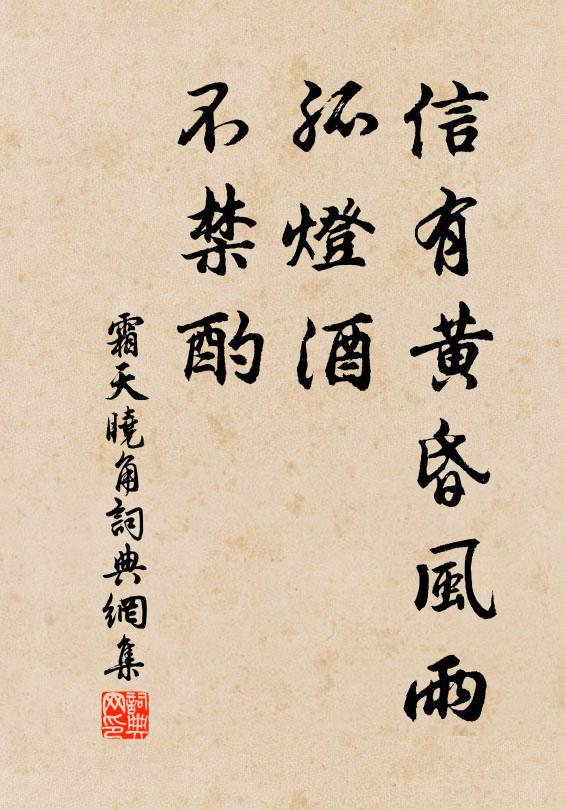 信有黃昏風雨
孤燈酒
不禁酌
霜天曉角詞典網集
詞典
网印